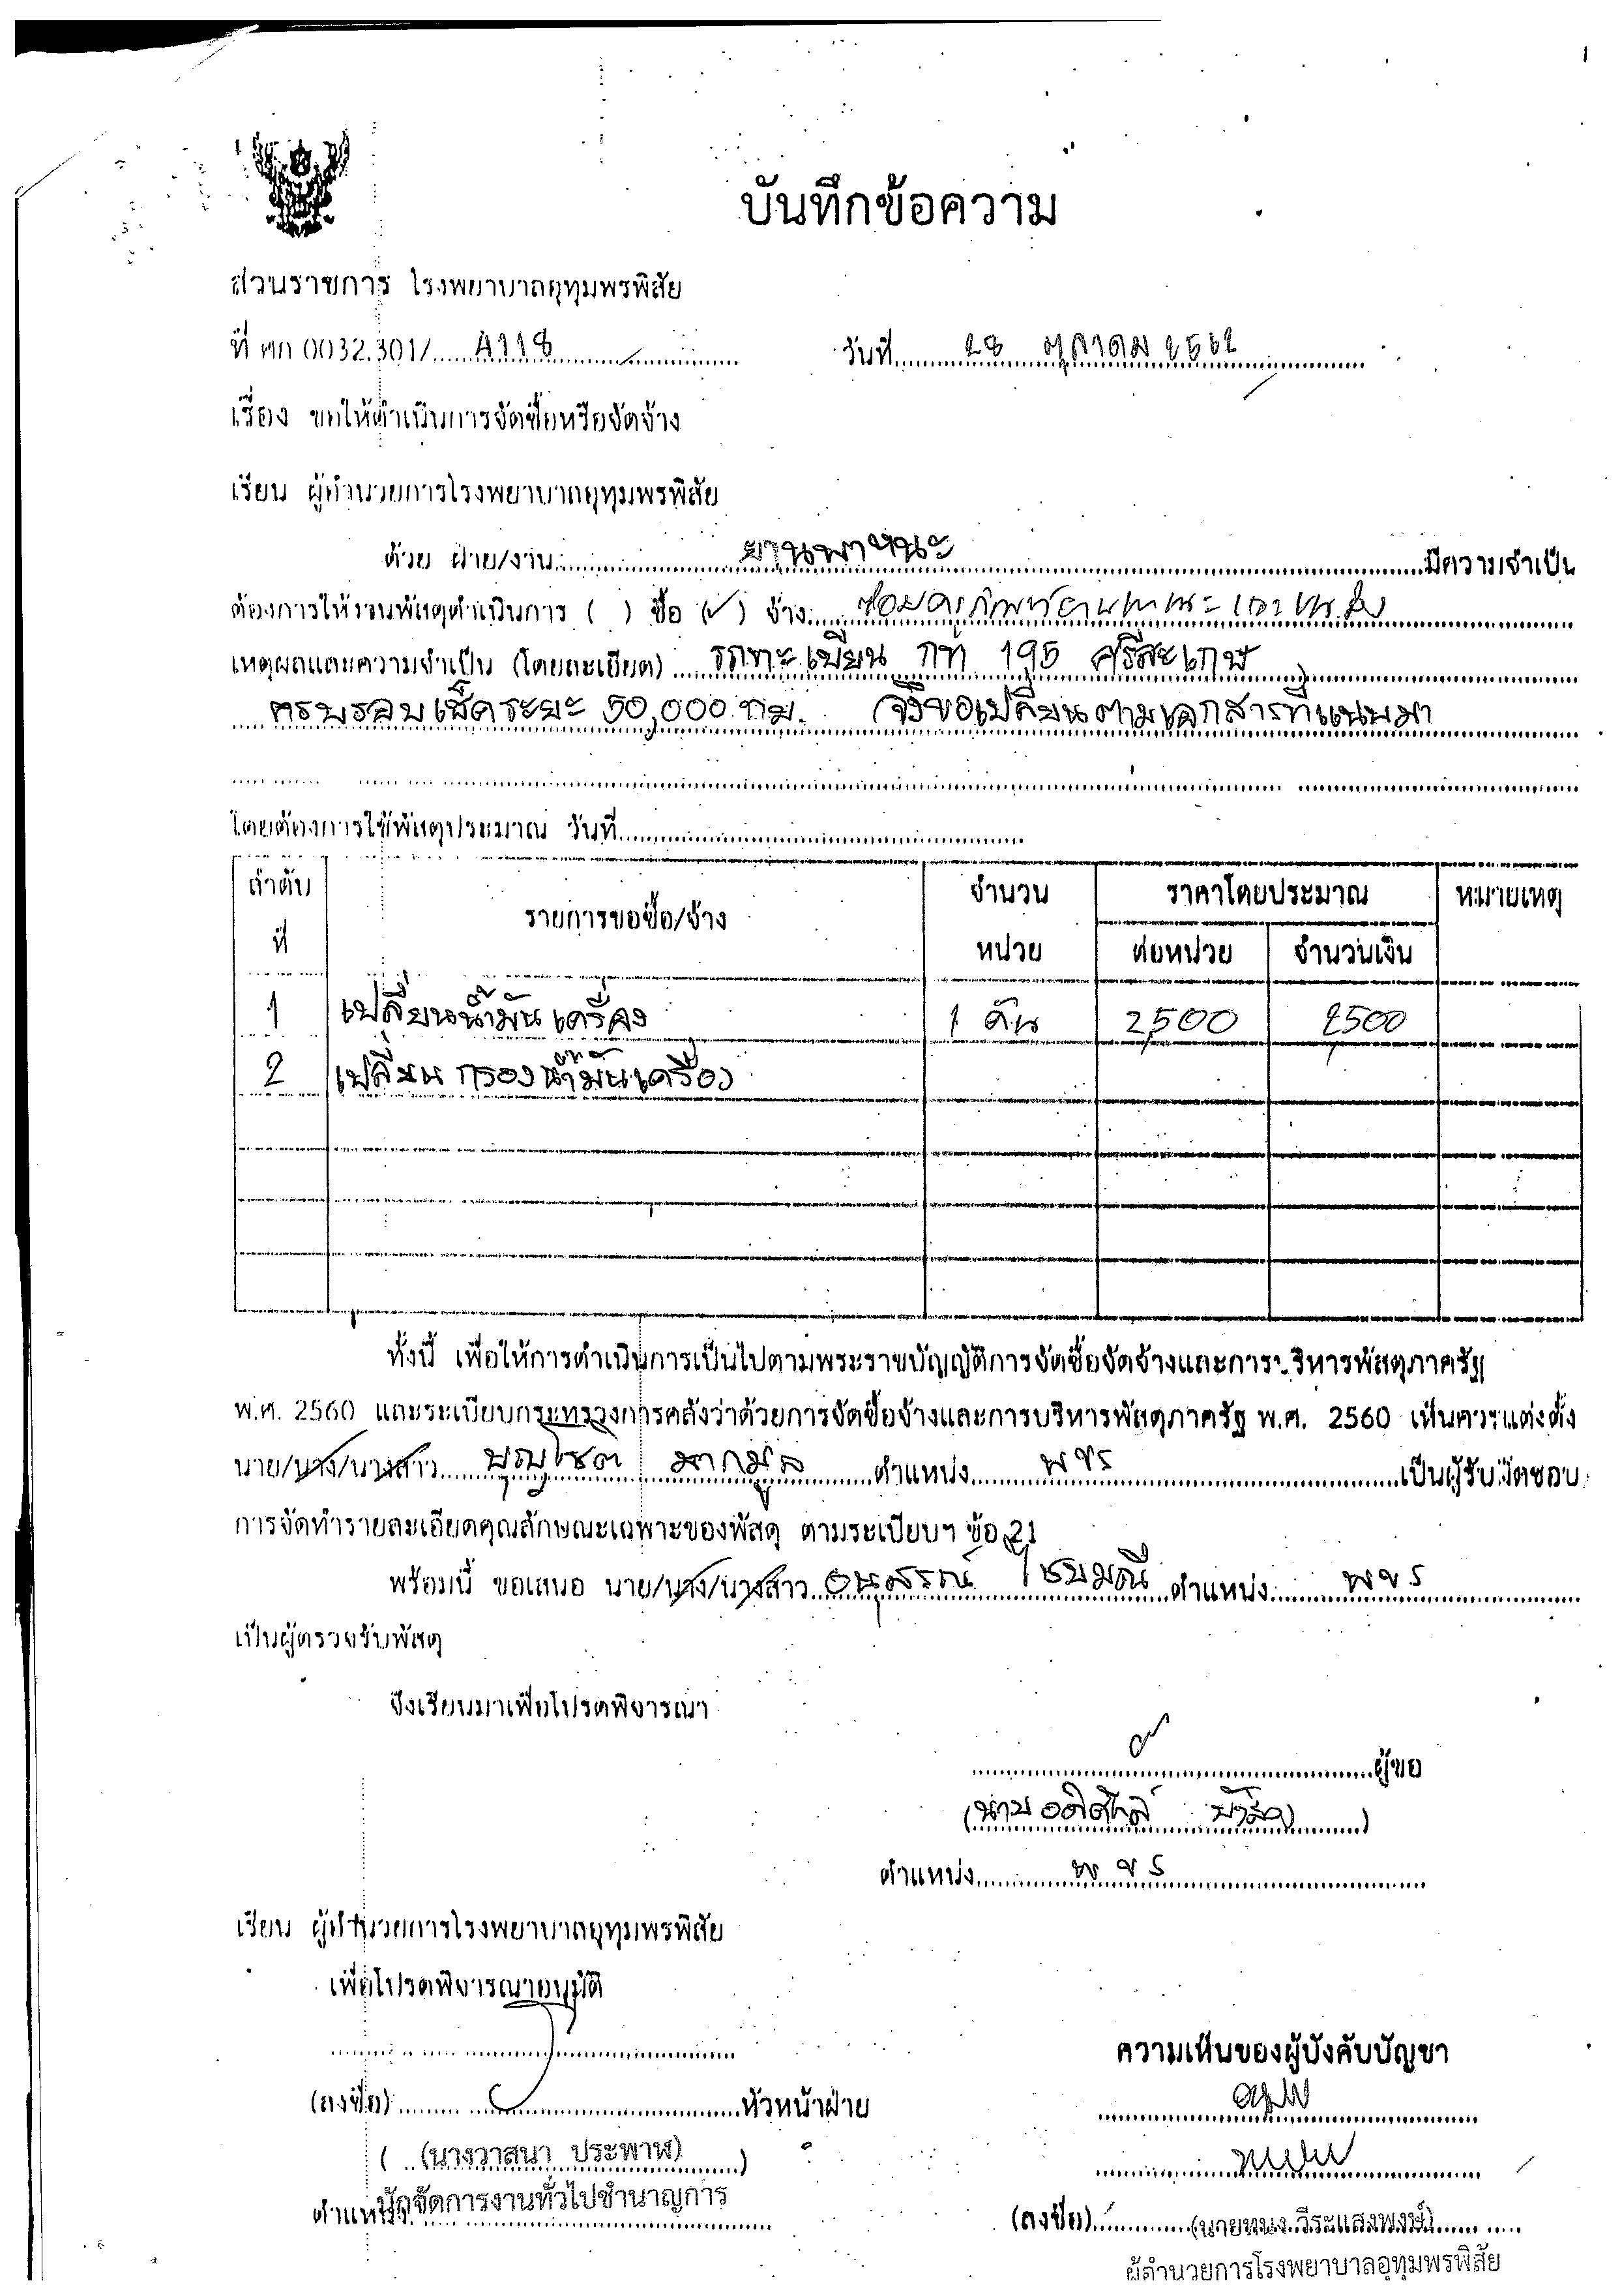 บันทึกข้อความ
ส่วนราชการ โรงพยาบาลอุทุมพรพิสัย
ที่ ศก 0032.301/ A118 วันที่ 28 ตุลาคม 2562
เรื่อง ขอให้ดำเนินการจัดซื้อหรือจัดจ้าง
เรียน ผู้อำนวยการโรงพยาบาลอุทุมพรพิสัย
ด้วย ฝ่าย/งาน ยานพาหนะ มีความจำเป็น
ต้องการให้งานพัสดุดำเนินการ ( ) ซื้อ (✓) จ้าง ซ่อมครุภัณฑ์ยานพาหนะและขนส่ง
เหตุผลและความจำเป็น (โดยละเอียด) รถทะเบียน กท 195 ศรีสะเกษ
ครบรอบเช็คระยะ 50,000 กม. จึงขอเปลี่ยนตามเอกสารที่แนบมา
โดยต้องการใช้พัสดุประมาณ วันที่
ลำดับที่ รายการขอซื้อ/จ้าง จำนวนหน่วย ราคาโดยประมาณ หมายเหตุ
ต่อหน่วย จำนวนเงิน
1 เปลี่ยนน้ำมันเครื่อง 1 คัน 2,500 2,500
2 เปลี่ยนกรองน้ำมันเครื่อง
ทั้งนี้ เพื่อให้การดำเนินการเป็นไปตามพระราชบัญญัติการจัดซื้อจัดจ้างและการบริหารพัสดุภาครัฐ
พ.ศ. 2560 และระเบียบกระทรวงการคลังว่าด้วยการจัดซื้อจ้างและการบริหารพัสดุภาครัฐ พ.ศ. 2560 เห็นควรแต่งตั้ง
นาย/นาง/นางสาว บุญโชติ มากมูล ตำแหน่ง พขร เป็นผู้รับผิดชอบ
การจัดทำรายละเอียดคุณลักษณะเฉพาะของพัสดุ ตามระเบียบฯ ข้อ 21
พร้อมนี้ ขอเสนอ นาย/นาง/นางสาว อนุสรณ์ ไชยมณี ตำแหน่ง พขร
เป็นผู้ตรวจรับพัสดุ
จึงเรียนมาเพื่อโปรดพิจารณา
ผู้ขอ
(นาย )
ตำแหน่ง พขร
เรียน ผู้อำนวยการโรงพยาบาลอุทุมพรพิสัย
เพื่อโปรดพิจารณาอนุมัติ
ความเห็นของผู้บังคับบัญชา
(ลงชื่อ) หัวหน้าฝ่าย
( (นางวาสนา ประพาฬ) )
ตำแหน่ง นักจัดการงานทั่วไปชำนาญการ
(ลงชื่อ) (นายทนง วีระแสงพงษ์)
ผู้อำนวยการโรงพยาบาลอุทุมพรพิสัย